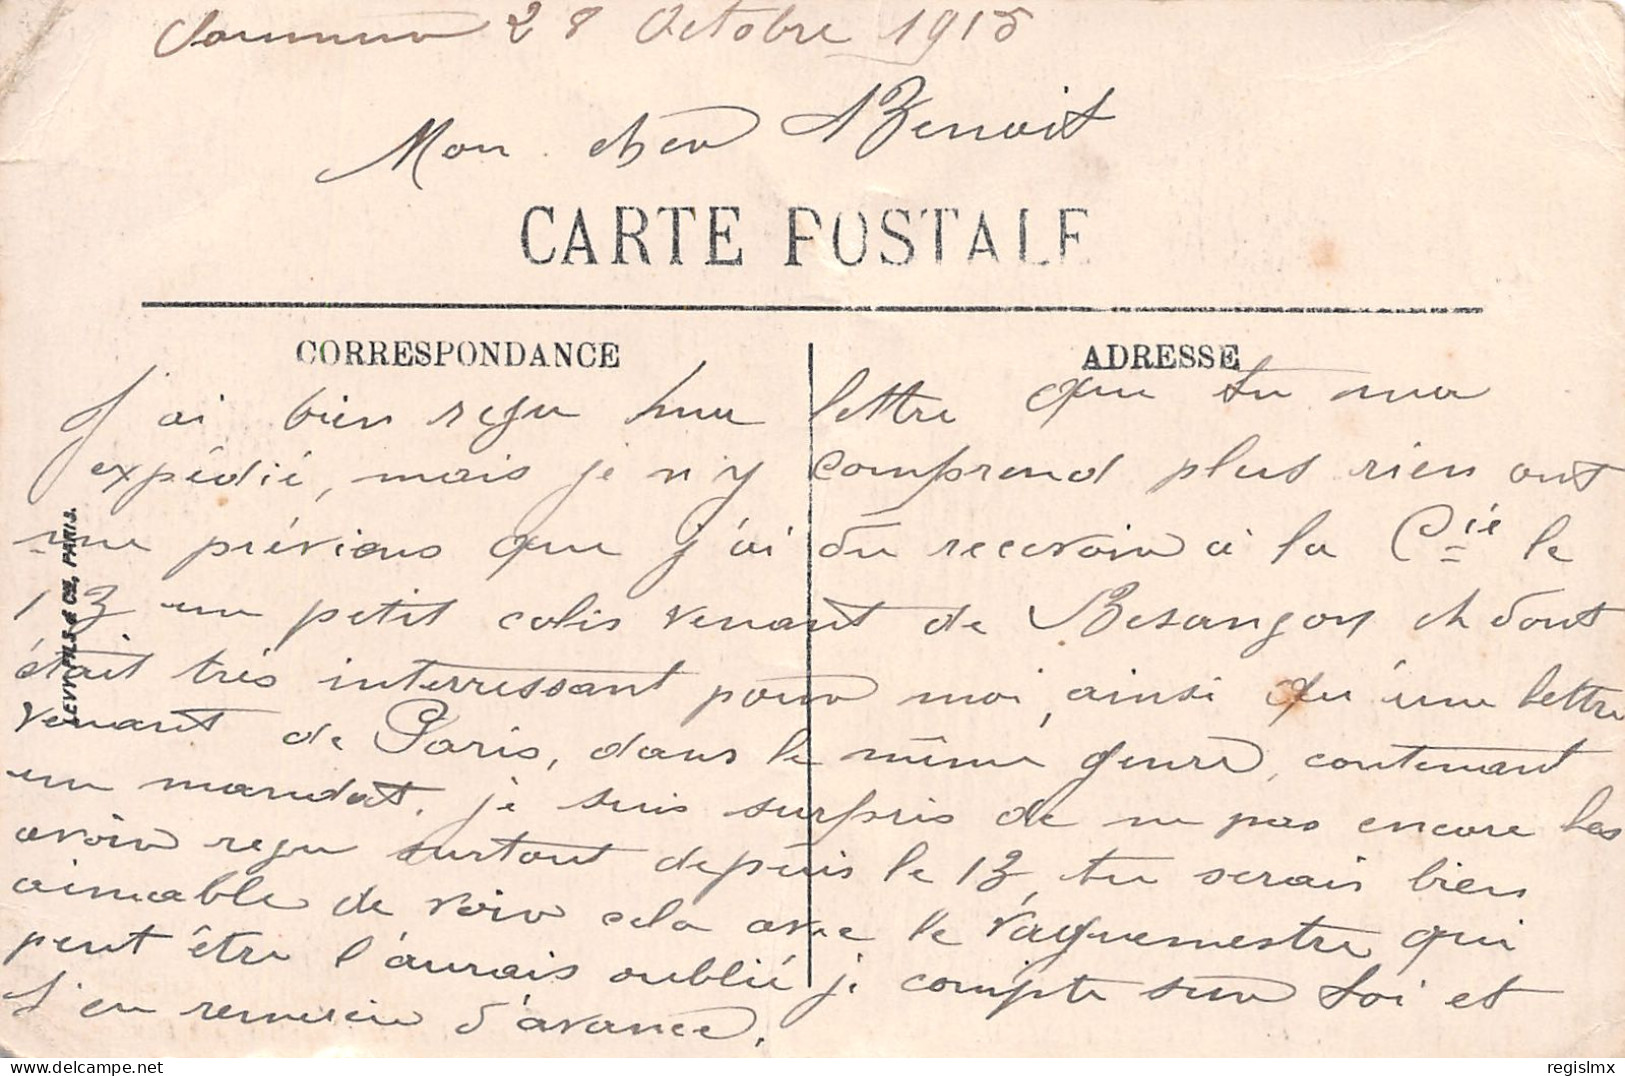 28 Octobre 1915
Mon cher Benoit
CARTE POSTALE
CORRESPONDANCE
ADRESSE
J'ai bien reçu lettre que tu ma
expédié, mais je n'y comprend plus rien ont
me préviens que j'ai du recevoir à la Cie le
13 un petit colis venant de Besançon et dont
était très interressant pour moi, ainsi qu'une lettre
venant de Paris, dans le même genre, contenant
un mandat. je suis surpris de ne pas encore les
avoir reçu surtout depuis le 13, tu serais bien
aimable de voir cela avec le Vaguemestre qui
peut être l'aurais oublié je compte sur toi et
t'en remercie d'avance.
LEVY FILS & Cie, PARIS.
regislmx